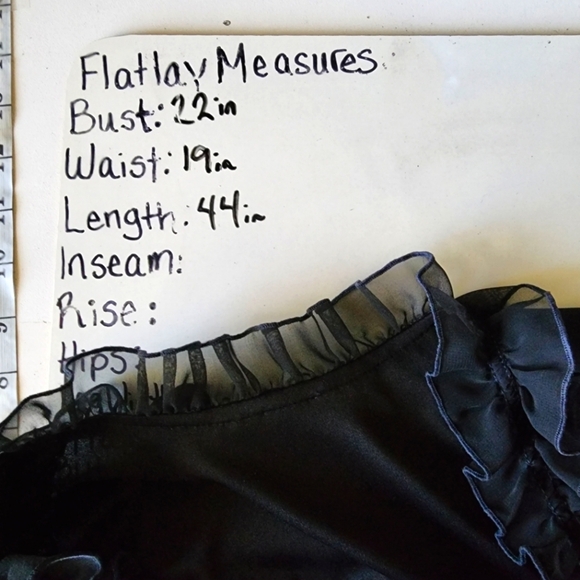 Flatlay Measures
Bust: 22in
Waist: 19in
Length: 44in
Inseam:
Rise:
Hips